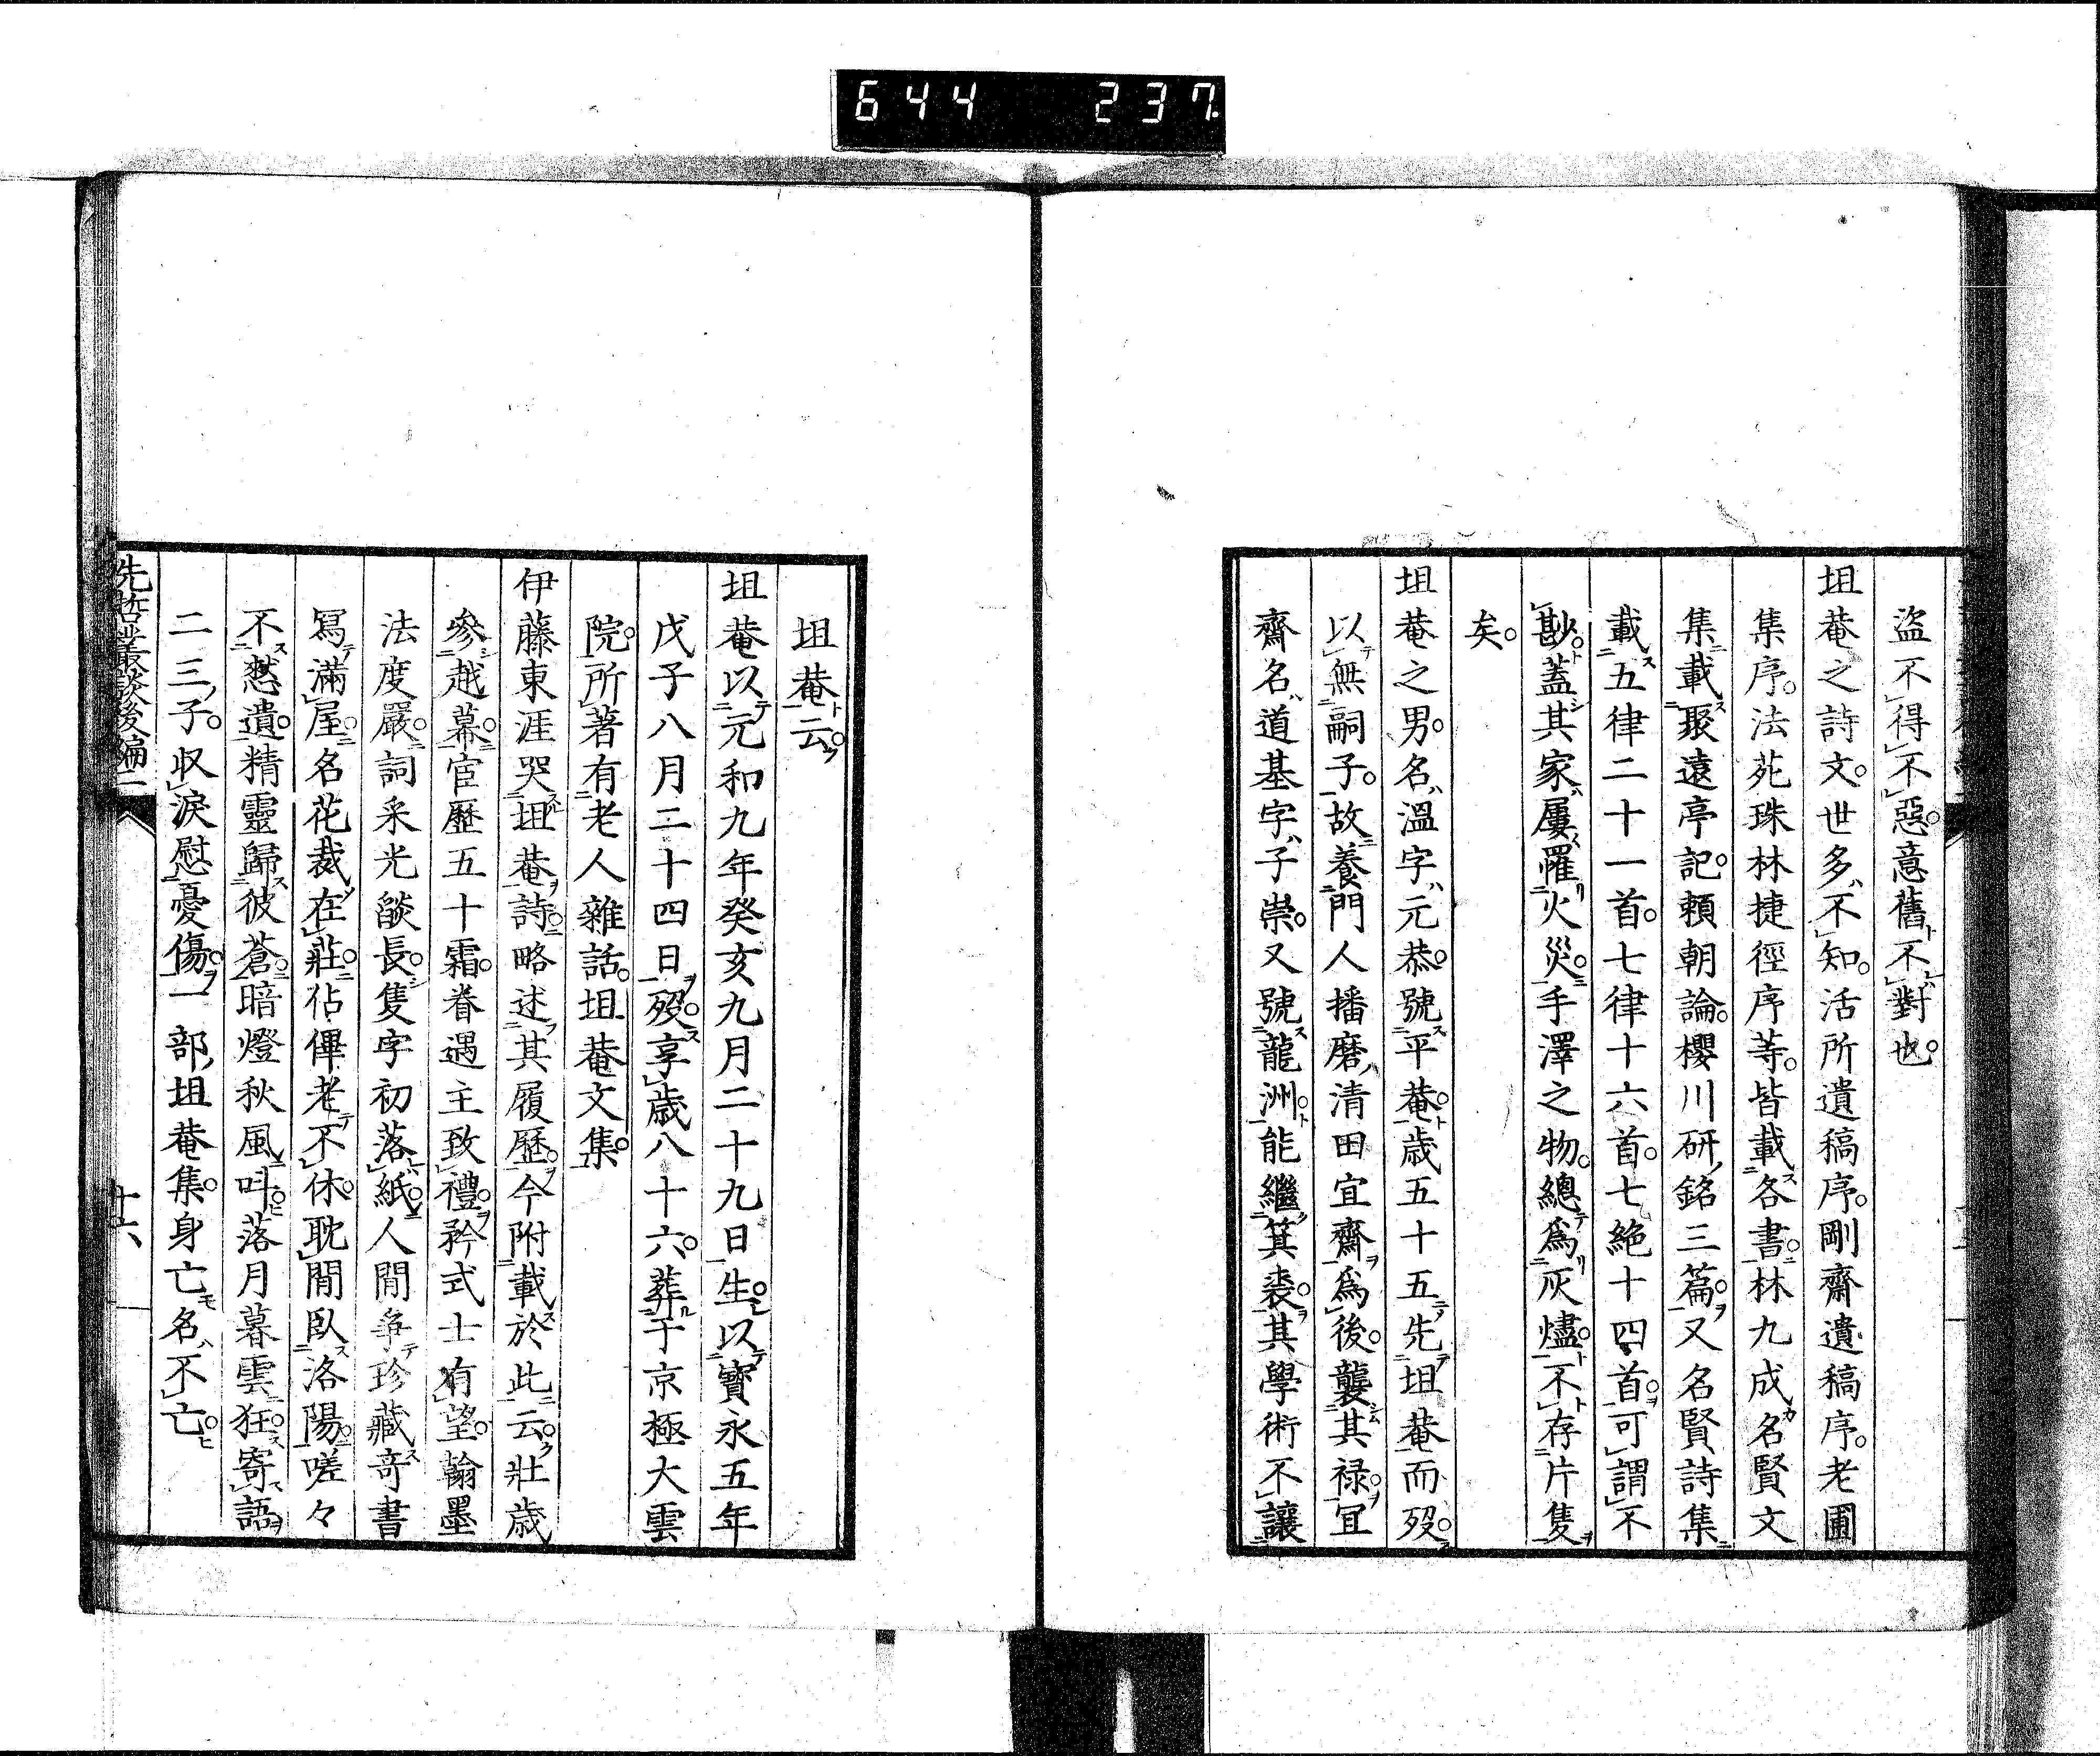 644 237
盜不得不惡意舊不對也
坦菴之詩文世多不知活所遺稿序剛齋遺稿序老圃
集序法苑珠林捷徑序等皆載各書林九成名賢文
集載聚遠亭記賴朝論櫻川研銘三篇又名賢詩集
載五律二十一首七律十六首七絶十四首可謂不
尠蓋其家屢罹火災手澤之物總爲灰燼不存片隻
矣
坦菴之男名溫字元恭號平菴歳五十五先坦菴而歿
以無嗣子故養門人播磨清田宜齋爲後襲其禄宜
齋名道基字子崇又號龍洲能繼箕裘其學術不讓
坦菴云
坦菴以元和九年癸亥九月二十九日生以寶永五年
戊子八月二十四日歿享歳八十六葬于京極大雲
院所著有老人雜話坦菴文集
伊藤東涯哭坦菴詩略述其履歷今附載於此云壯歳
參越幕宦歷五十霜眷遇主致禮矜式士有望翰墨
法度嚴詞采光燄長隻字初落紙人間爭珍藏奇書
寫滿屋名花裁在莊佔俾老不休耽閒臥洛陽嗟々
不憖遺精靈歸彼蒼暗燈秋風叫落月暮雲狂寄語
二三子収淚慰憂傷一部坦菴集身亡名不亡
先哲叢談後編二
十六